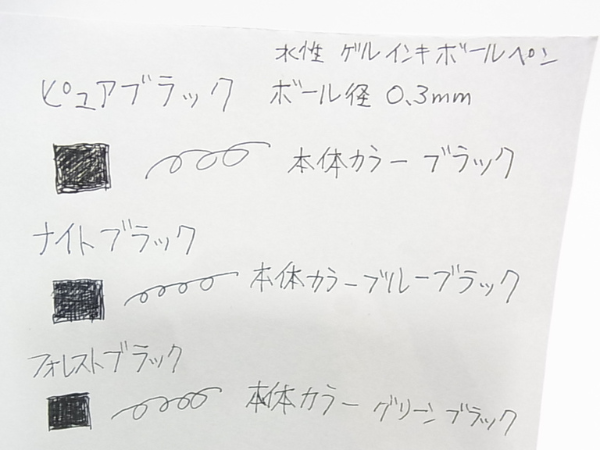 水性 ゲルインキボールペン
ピュアブラック ボール径 0.3mm
本体カラー ブラック
ナイトブラック
本体カラーブルーブラック
フォレストブラック
本体カラー グリーンブラック